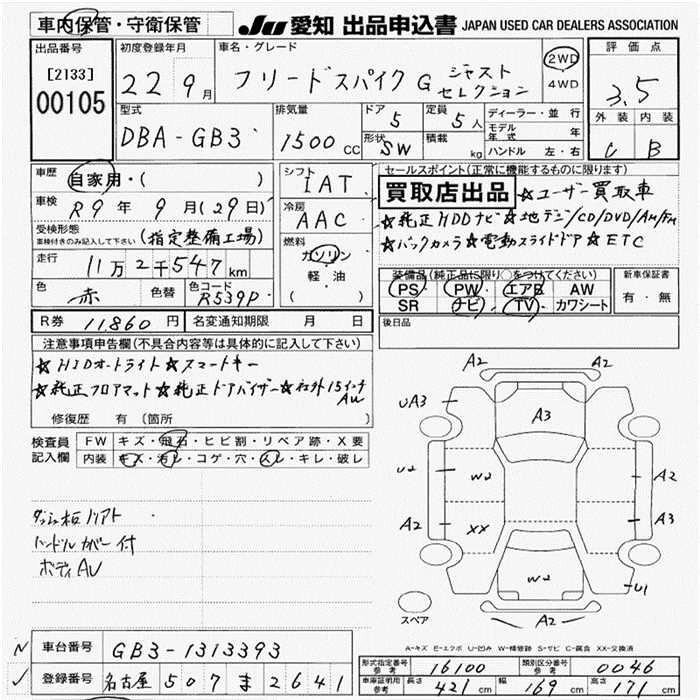 車内保管・守衛保管
JU 愛知 出品申込書 JAPAN USED CAR DEALERS ASSOCIATION
出品番号
[2133]
00105
初度登録年月
22 9月
車名・グレード
フリードスパイク G ジャスト
セレクション
2WD
4WD
評価点
3.5
外装 内装
C B
型式
DBA-GB3
排気量
1500 CC
ドア 5
形状 SW
定員 5人
積載 kg
ディーラー・並行
モデル年式 年
ハンドル 左・右
車歴 自家用・( )
車検 R9年 9月(29日)
受検形態
車検付きのみ記入して下さい (指定整備工場)
走行 11万2千547km
色 赤 色替 色コード R539P
シフト IAT
冷房 AAC
燃料
ガソリン
軽・油
( )
セールスポイント(正常に機能するものに限ります)
買取店出品 ☆ユーザー買取車
☆純正HDDナビ☆地デジ/CD/DVD/AM/FM
☆バックカメラ☆電動スライドドア☆ETC
装備品(純正品S限り○をつけてください)
PS PW エアB AW
SR ナビ TV カワシート
新車保証書
有・無
R券 11860円 名変通知期限 月 日
後日品
注意事項申告欄(不具合内容等は具体的に記入して下さい)
☆HIDオートライト☆スマートキー
☆純正フロアマット☆純正ドアバイザー☆社外15インチ
AW
修復歴 有(箇所
検査員
記入欄
FW キズ・飛石・ヒビ割・リペア跡・X要
内装 キズ・汚レ・コゲ・穴・スレ・キレ・破レ
ハンドルカバー付
A2
UA3
A3
U2
W2
A2
A2
XX
A3
W2
U1
A2
スペア
A-キズ E-エクボ U-凹み W-補修跡 S-サビ C-腐食 XX-交換済
車台番号 GB3-1313393
登録番号 名古屋 507 ま 2641
形式指定番号
参考 16100
類別区分番号
参考 0046
車庫証明用
参考 長さ 421cm 幅 169cm 高さ 171cm